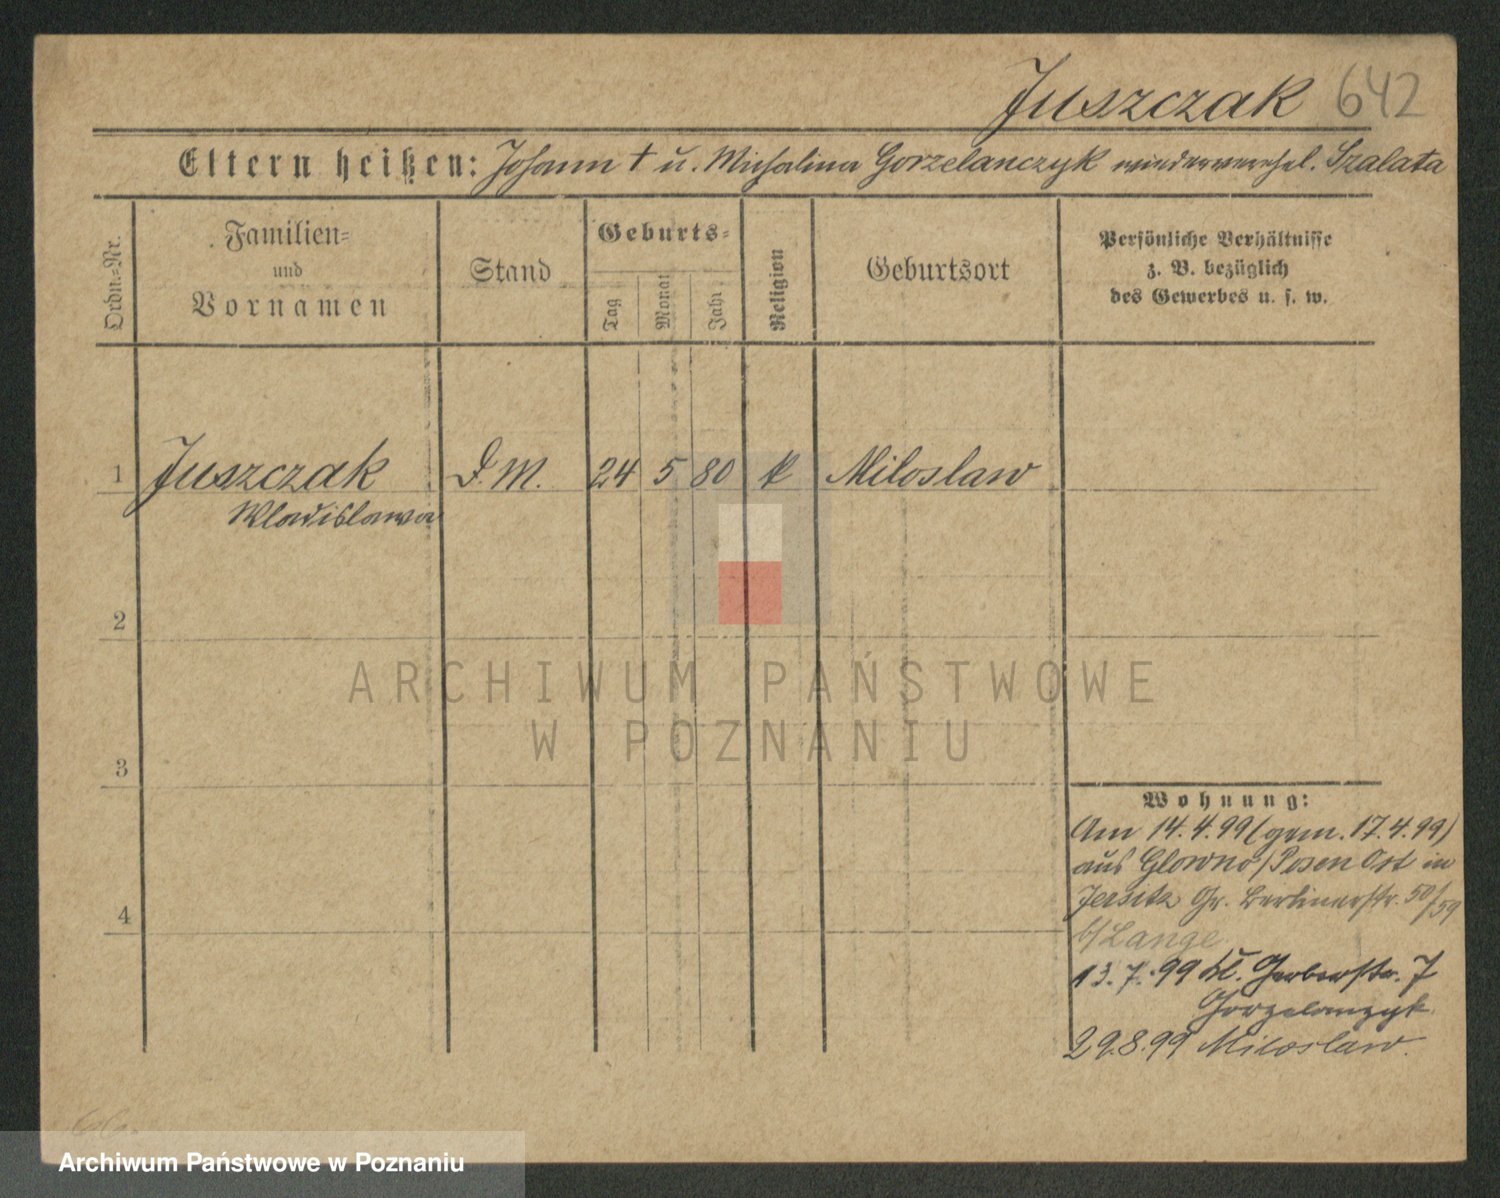 Juszczak 642
Eltern heißen: Johann † u. Michalina Gorzelanczyk wiederverehel. Szalata
Ordn.=Nr.
Familien=
und
Vornamen
Stand
Geburts=
Tag
Monat
Jahr
Religion
Geburtsort
Persönliche Verhältnisse
z. B. bezüglich
des Gewerbes u. s. w.
1 Juszczak D. M. 24 5 80 k Miloslaw
Wladislawa
2
3
4
Wohnung:
Am 14.4.99 (gem. 17.4.99)
aus Glowno/Posen Ost in
Jersitz Gr. Berlinerstr. 50/59
b/Lange
13.7.99 Kl. Gerberstr. 7
Gorzelanzyk
29.8.99 Miloslaw.
ARCHIWUM PAŃSTWOWE
W POZNANIU
Archiwum Państwowe w Poznaniu